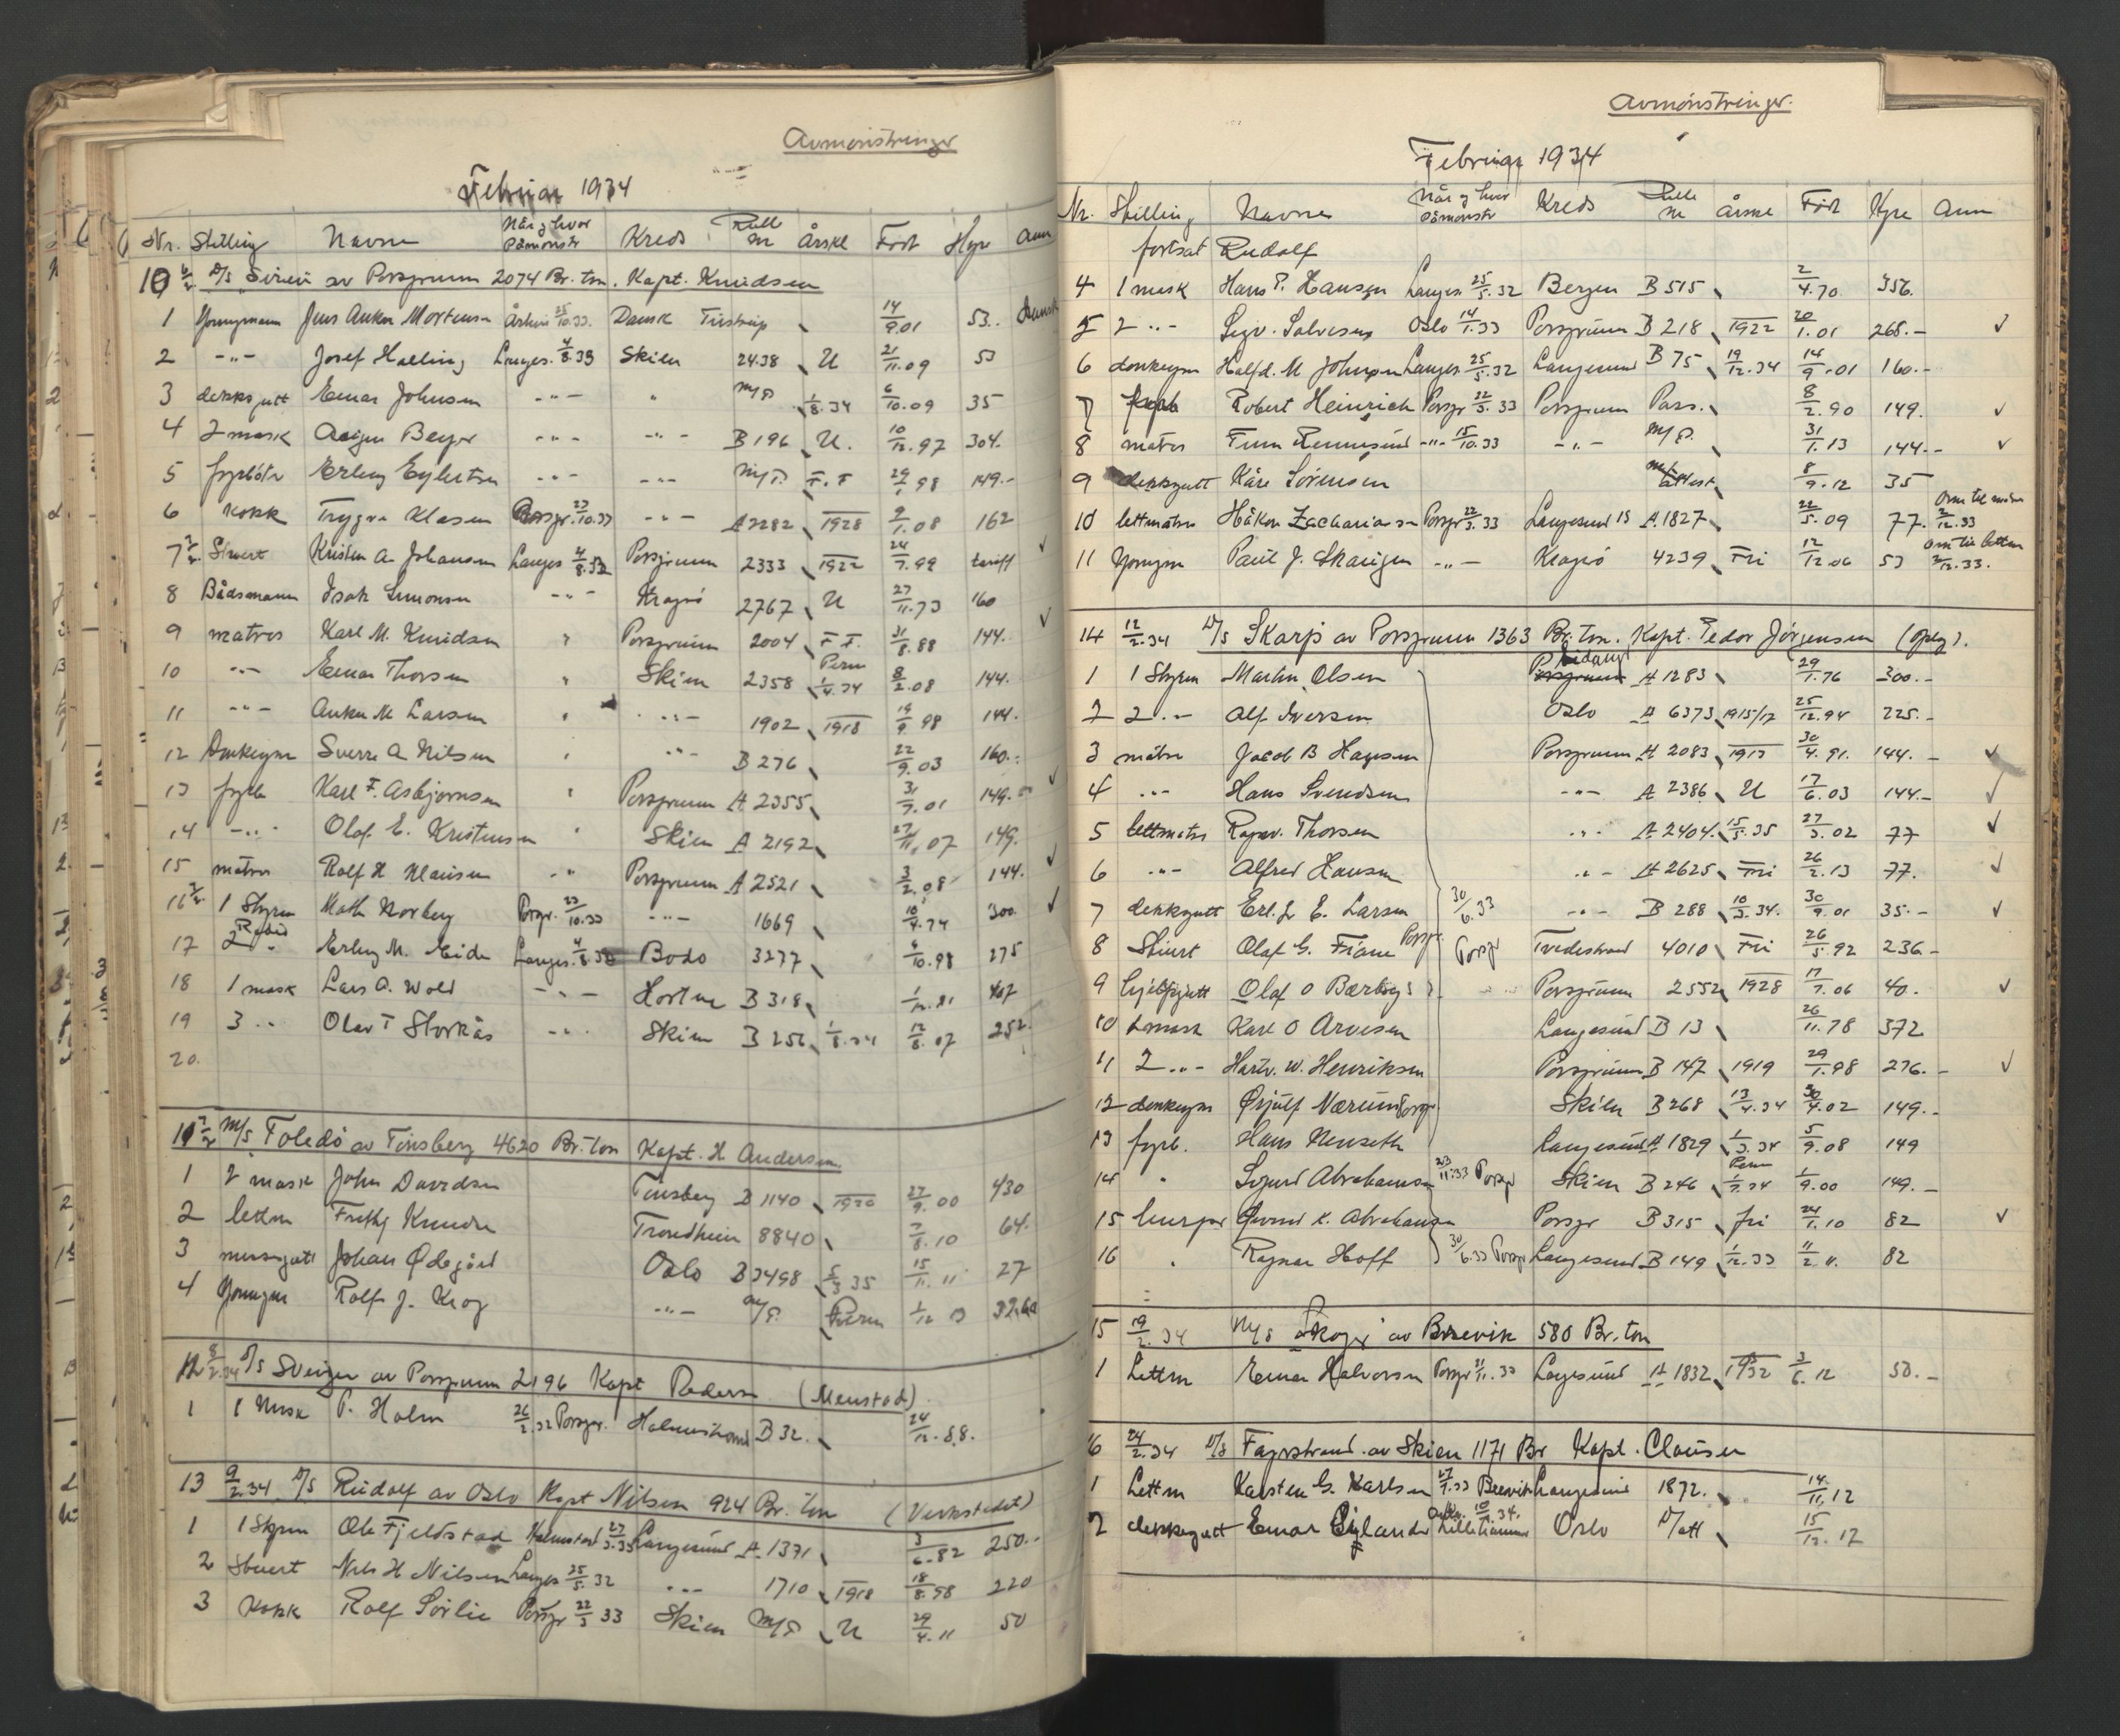 Avmønstringer
Februar 1934
Nr. Stilling Navn Når og hvor påmønstr Kreds Rull nr Årskl Født Hyre Anm
10 6/2 D/S Sirein av Porsgrunn 2074 Br. ton. Kapt. Knudsen
1 Youngmann Jens Anker Mortensen Århus 25/10.33. Dansk Tirstrup 14/9.01 53.. Dansk
2 -"- Josef Halling Langes. 4/8.33 Skien 2438 U 21/11.09 53
3 dekksgutt Einar Johnsen -"- " M/P 1/8.34 6/10.09 35
4 2 mask Aage Beyer -"- -"- B 196 U. 10/12.97 304.
5 fyrbøter Erling Eilertsen -"- -"- M/P. F.F 29/1 98 149.-
6 Kokk Trygve Klasen Porsgr. 23/10.33 -"- A 2282 1928 9/1.08 162
7 7/2 Stuert Kristen A. Johansen Langes 4/8.33 Porsgrunn 2333 1922 24/7.99 tariff ✓
8 Båtsmann Isak Simonsen -"- Kragerø 2767 U 27/11.73 160
9 matros Karl M. Knudsen " Porsgrunn 2004 F.F. 31/8.88 144. ✓
10 -"- Einar Thorsen " Skien 2358 Perm 1/4.34 8/2.08 144.
11 -"- Anker M Larsen " -"- 1902 1918 19/9 98 144.
12 Donkeym Sverre A Nilsen " -"- B 276 22/9.03 160.-
13 fyrb Karl F. Asbjørnsen " Porsgrunn A 2355 31/7.01 149.- ✓
14 -"- Olaf E. Kristensen " Skien A 2192 27/11.07 149.
15 matros Rolf H Klausen -"- Porsgrunn A 2521 3/2.08 144. ✓
16 7/2 1 Styrm Math Norberg Porsgr. 23/10.33 -"- 1669 10/4.74 300 ✓
17 2 " Radio Erling M. Eide Langes. 4/8.33 Bodø 3277 6/10.98 275
18 1 mask Lars A. Wold -"- Horten B 318 1/12.81 407
19 3 " Olav T Storkås -"- Skien B 256 1/8.34 12/8.07 252.
20.
11 7/2 M/S Toledo av Tønsberg 4620 Br. ton Kapt. H Andersen
1 2 mask John Davidsen Tønsberg B 1140 1920 27/9.00 430
2 lettm Frithj Knudsen Trondheim 8840 7/8.10 64.
3 messegutt Johan Ødegård Oslo B 3498 5/3 35 15/11.11 27
4 Youngm Rolf J. Krog -"- M/P. Perm 1/12 13 32.60
12 8/2.34 D/S Sveigen av Porsgrunn 2196 Kapt Pedersen (Menstad)
1 1 Mask P. Holm 26/2.32 Porsgr. Holmestrand B 32. 24/12.88.
13 9/2.34 D/S Rudolf av Oslo Kapt Nilsen 924 Br. ton (Verkstedet)
1 1 Styrm Ole Fjeldstad Halmstad 27/3.33 Langesund A 1371 3/6.82 250.-
2 Stuert Nils H Nilsen Langes 25/5.32 -"- 1710 1918 18/8.98 220
3 Kokk Rolf Sørlie Porsgr 22/3 33 Skien M/P U 29/4.11 50
Avmønstringer.
Februar 1934
Nr. Stilling Navn Når og hvor påmønstr Kreds Rulle nr Årskl Født Hyre Anm
fortsat Rudolf
4 1 mask Hans P. Hansen Langes. 25/5.32 Bergen B 515 2/4.70. 356.
5 2 -"- Sigv. Salvesen Oslo 14/1.33 Porsgrunn B 218 1922 20/1.01 268.- ✓
6 donkeym Halfd. M Johnsen Langes. 25/5.32 Langesund B 75 19/12.34 14/9.01 160.-
7 fyrb Robert Heinrich Porsgr 22/3.33 Porsgrunn Pass. 8/2.90 149. ✓
8 matros Finn Rennesund -"- 15/10.33 -"- M/P. 31/1.13 144.- ✓
9 dekksgutt Kåre Sørensen M/attest 8/9.12 35
10 lettmatros Håkon Zachariasen Porsgr 22/3.33 Langesund 18 A.1827 22/5.09 77. Om til matros 2/12.33
11 Youngm Paul J. Skaugen -"- Kragerø 4239 Fri 12/12.06 53 Om til lettm 2/12.33.
14 12/2.34 D/S Skarp av Porsgrunn 1363 Br. Ton. Kapt. Peder Jørgensen (oplag).
1 1 Styrm Martin Olsen Porsgrunn Eidanger A 1283 29/1.76 300.-
2 2 -"- Alf Iversen Oslo A 6373 1915/17 25/12.94 225.-
3 matros Jacob B Hansen Porsgrunn A 2083 1913 30/4.91. 144.- ✓
4 -"- Hans Svendsen -"- A 2386 U 17/6.03 144.- ✓
5 lettmatros Ragnv. Thorsen -"- A 2404 15/5.35 27/3.02 77 ✓
6 -"- Alfred Hansen -"- A 2625 Fri 26/2.13 77. ✓
7 dekksgutt Erl. E. Larsen 30/6.33 -"- B 288 10/3.34. 30/9.01 35.- ✓
8 Stuert Olaf G. Frane Porsgr Tvedestrand 4010 Fri 26/5.92 236.-
9 hjelpegutt Olaf O Bærbys Porsgrunn 2552 1928 17/7.06 40. ✓
10 1 mask Karl O Arvesen Langesund B 13 26/11.78 372
11 2 -"- Hartv. W. Henriksen Porsgrunn B 147 1919 29/1.98 276.- ✓
12 donkeym Ørjulf Nærum Porsgr Skien B 268 13/4.34 30/4.02 149.-
13 fyrb. Hans Nenseth Langesund A 1829 1/3.34 5/9.08 149
14 " Sigurd Abrahamsen 23/11.33 Porsgr Skien B 246 Perm 1/7.34 1/9.00 149.-
15 Øivind K. Abrahamsen Porsgr B 315 fri 24/1.10 82 ✓
16 " Ragnar Hoff 30/6.33 Porsgr Langesund B 149 1/12.33 11/2.11. 82
15 19/2.34 M/S Skoger av Brevik 580 Br. ton
1 Lettm Einar Halvorsen Porsgr 21/11.33 Langesund A 1832 1932 3/6.12 50.-
16 24/2.34 D/S Fagerstrand av Skien 1171 Br Kapt. Clausen
1 Lettm Karsten G. Karlsen 27/7.33 Brevik Langesund 1872. 14/11.12
2 dekksgutt Einar 10/1.34. Lillehammer Oslo D/att 15/12.17